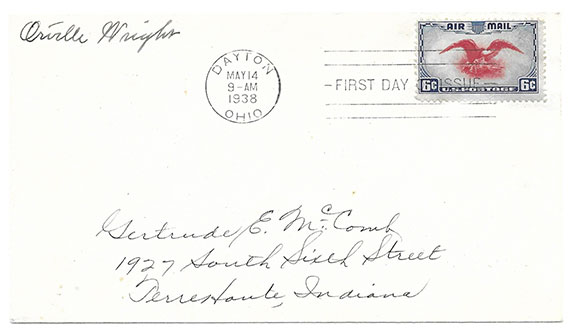 Orville Wright
AIR MAIL
6¢ U.S. POSTAGE 6¢
DAYTON
MAY 14
9-AM
1938
OHIO
FIRST DAY OF ISSUE
Gertrude E. McComb
1927 South Sixth Street
Terre Haute, Indiana